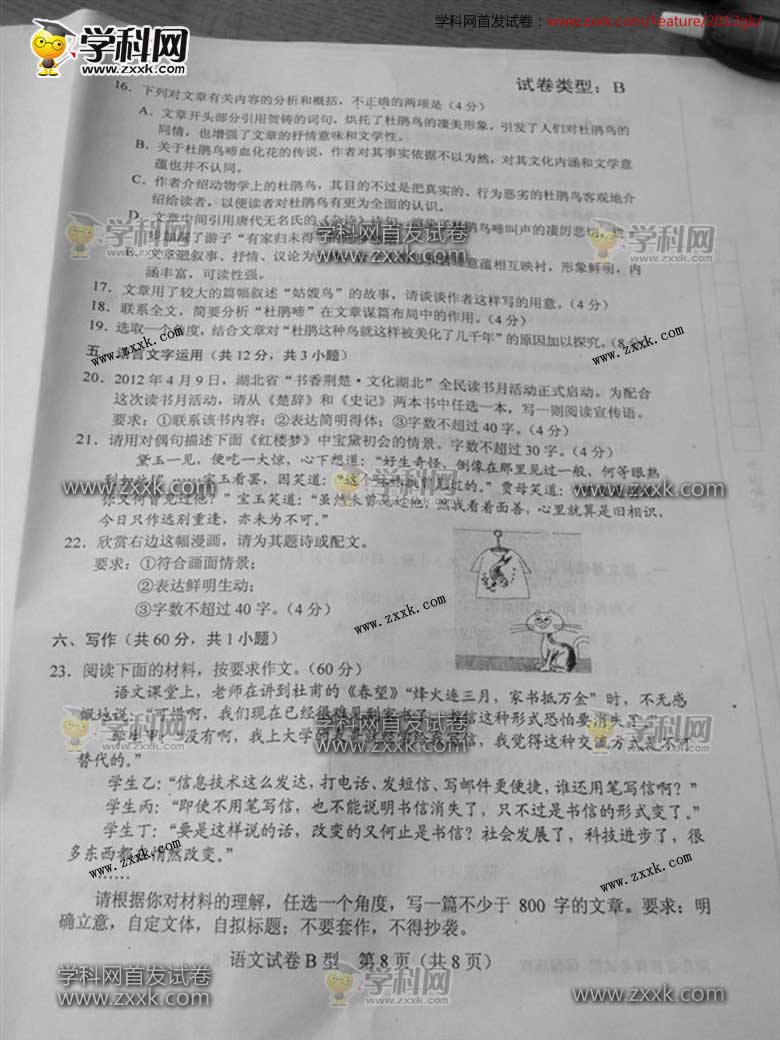 学科网首发试卷：www.zxxk.com/feature/2012gk/
学科网
zxxk.com
试卷类型：B
16．下列对文章有关内容的分析和概括，不正确的两项是（4分）
A．文章开头部分引用贺铸的词句，烘托了杜鹃鸟的凄美形象，引发了人们对杜鹃鸟的
同情，也增强了文章的抒情意味和文学性。
B．关于杜鹃鸟啼血化花的传说，作者对其事实依据不以为然，对其文化内涵和文学意
蕴也并不认同。
C．作者介绍动物学上的杜鹃鸟，其目的不过是把真实的、行为恶劣的杜鹃鸟客观地介
绍给读者，以便读者对杜鹃鸟有更为全面的认识。
D．文章中间引用唐代无名氏的《杂诗》诗句，渲染了杜鹃鸟啼叫声的凄厉悲切，
游子“有家归未得
E．文章融叙事、抒情、议论为 意蕴相互映衬，形象鲜明，内
涵丰富，可读性强。
17．文章用了较大的篇幅叙述“姑嫂鸟”的故事，请谈谈作者这样写的用意。（4分）
18．联系全文，简要分析“杜鹃啼”在文章谋篇布局中的作用。（4分）
19．选取一个角度，结合文章对“杜鹃这种鸟就这样被美化了几千年”的原因加以探究。（8分）
五、语言文字运用（共12分，共3小题）
20．2012年4月9日，湖北省“书香荆楚·文化湖北”全民读书月活动正式启动。为配合
这次读书月活动，请从《楚辞》和《史记》两本书中任选一本，写一则阅读宣传语。
要求：①联系该书内容；②表达简明得体；③字数不超过40字。（4分）
21．请用对偶句描述下面《红楼梦》中宝黛初会的情景。字数不超过30字。（4分）
黛玉一见，便吃一大惊，心下想道：“好生奇怪，倒像在那里见过一般，何等眼熟
到如此！”宝玉看罢，因笑道：“这个妹妹我曾见过的。”贾母笑道：
你又何曾见过他？”宝玉笑道：“虽然未曾见过他，然我看着面善，心里就算是旧相识，
今日只作远别重逢，亦未为不可。”
22．欣赏右边这幅漫画，请为其题诗或配文。
要求：①符合画面情景；
②表达鲜明生动；
③字数不超过40字。（4分）
六、写作（共60分，共1小题）
23．阅读下面的材料，按要求作文。（60分）
语文课堂上，老师在讲到杜甫的《春望》“烽火连三月，家书抵万金”时，不无感
慨地说：“可惜啊，我们现在已经很难见到家书了，书信这种形式恐怕要消失了。”
学生甲：“没有啊，我上大学的 写信，我觉得这种交流方式是不可
替代的。”
学生乙：“信息技术这么发达，打电话、发短信、写邮件更便捷，谁还用笔写信啊？”
学生丙：“即使不用笔写信，也不能说明书信消失了，只不过是书信的形式变了。”
学生丁：“要是这样说的话，改变的又何止是书信？社会发展了，科技进步了，很
多东西都在悄然改变。”
……
请根据你对材料的理解，任选一个角度，写一篇不少于 800 字的文章。要求：明
确立意，自定文体，自拟标题；不要套作，不得抄袭。
语文试卷B型　第8页（共8页）
学科网首发试卷
www.zxxk.com
学科网
zxxk.com